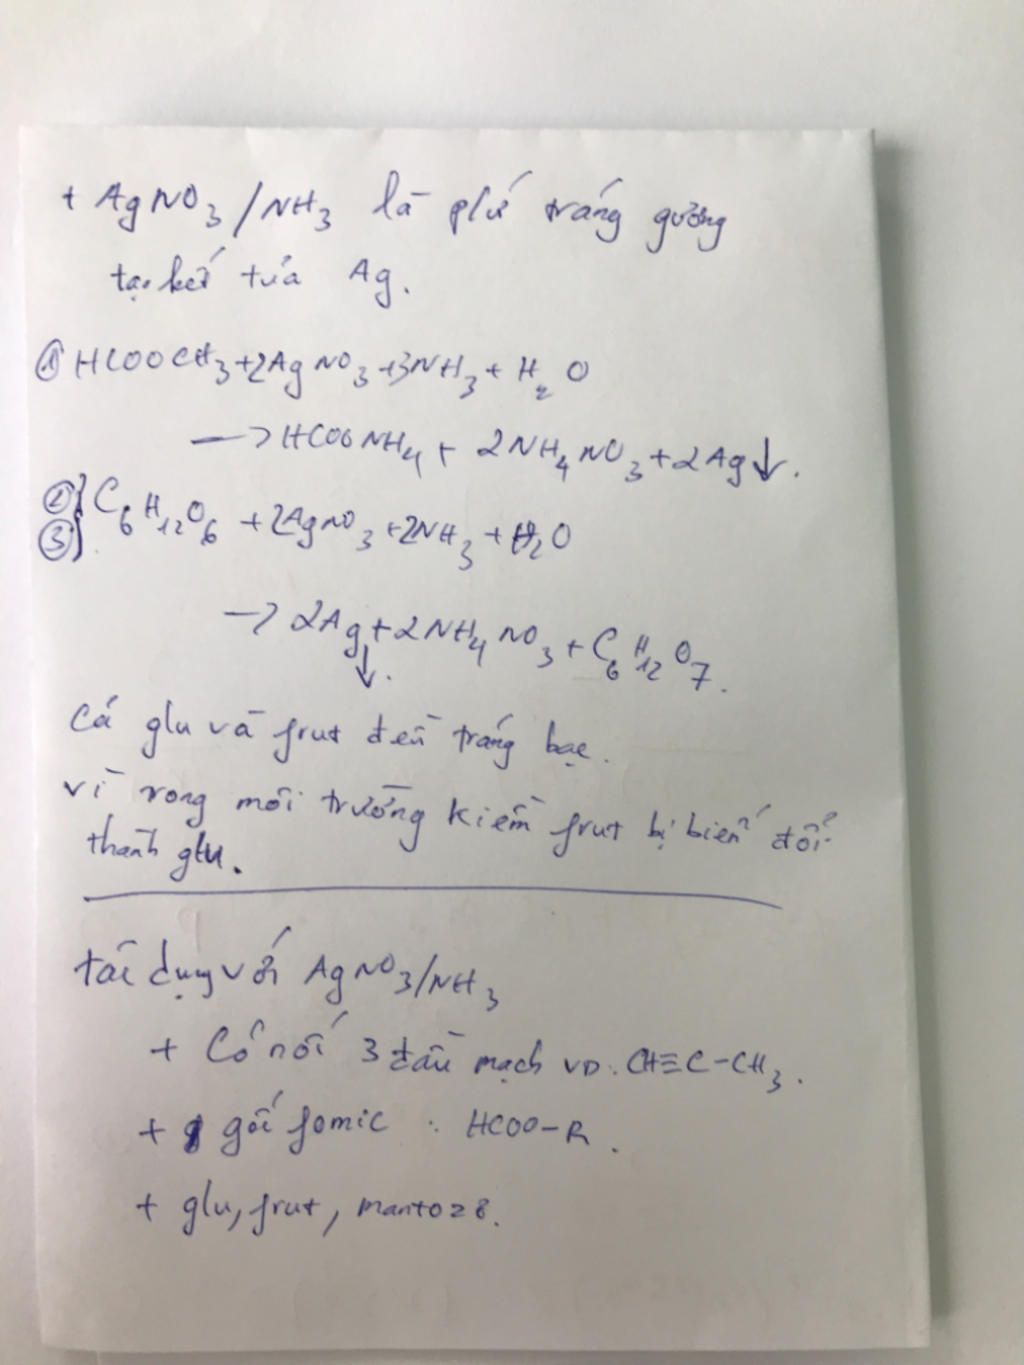 + AgNO3/NH3 là pứ tráng gương
tạo kết tủa Ag.
① HCOOCH3+2AgNO3+3NH3+ H2O
→ HCOONH4+ 2NH4NO3+2Ag↓.
② ③ } C6H12O6 +2AgNO3+2NH3 +H2O
→ 2Ag↓+2NH4NO3+C6H12O7.
Cả glu và frut đều tráng bạc.
vì rong môi trường kiềm frut bị biến đổi
thành glu.
tác dụng với AgNO3/NH3
+ Có nối 3 đầu mạch VD: CH≡C-CH3.
+ gốc fomic : HCOO-R.
+ glu, frut, mantozơ.